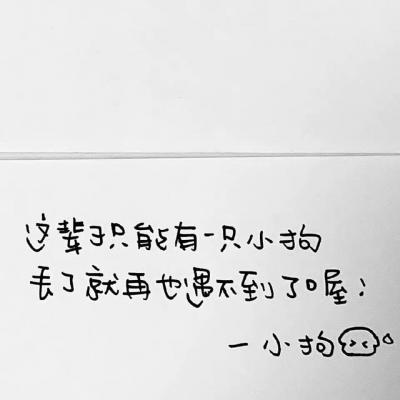 这辈子只能有一只小狗
丢了就再也遇不到了喔！
－小狗